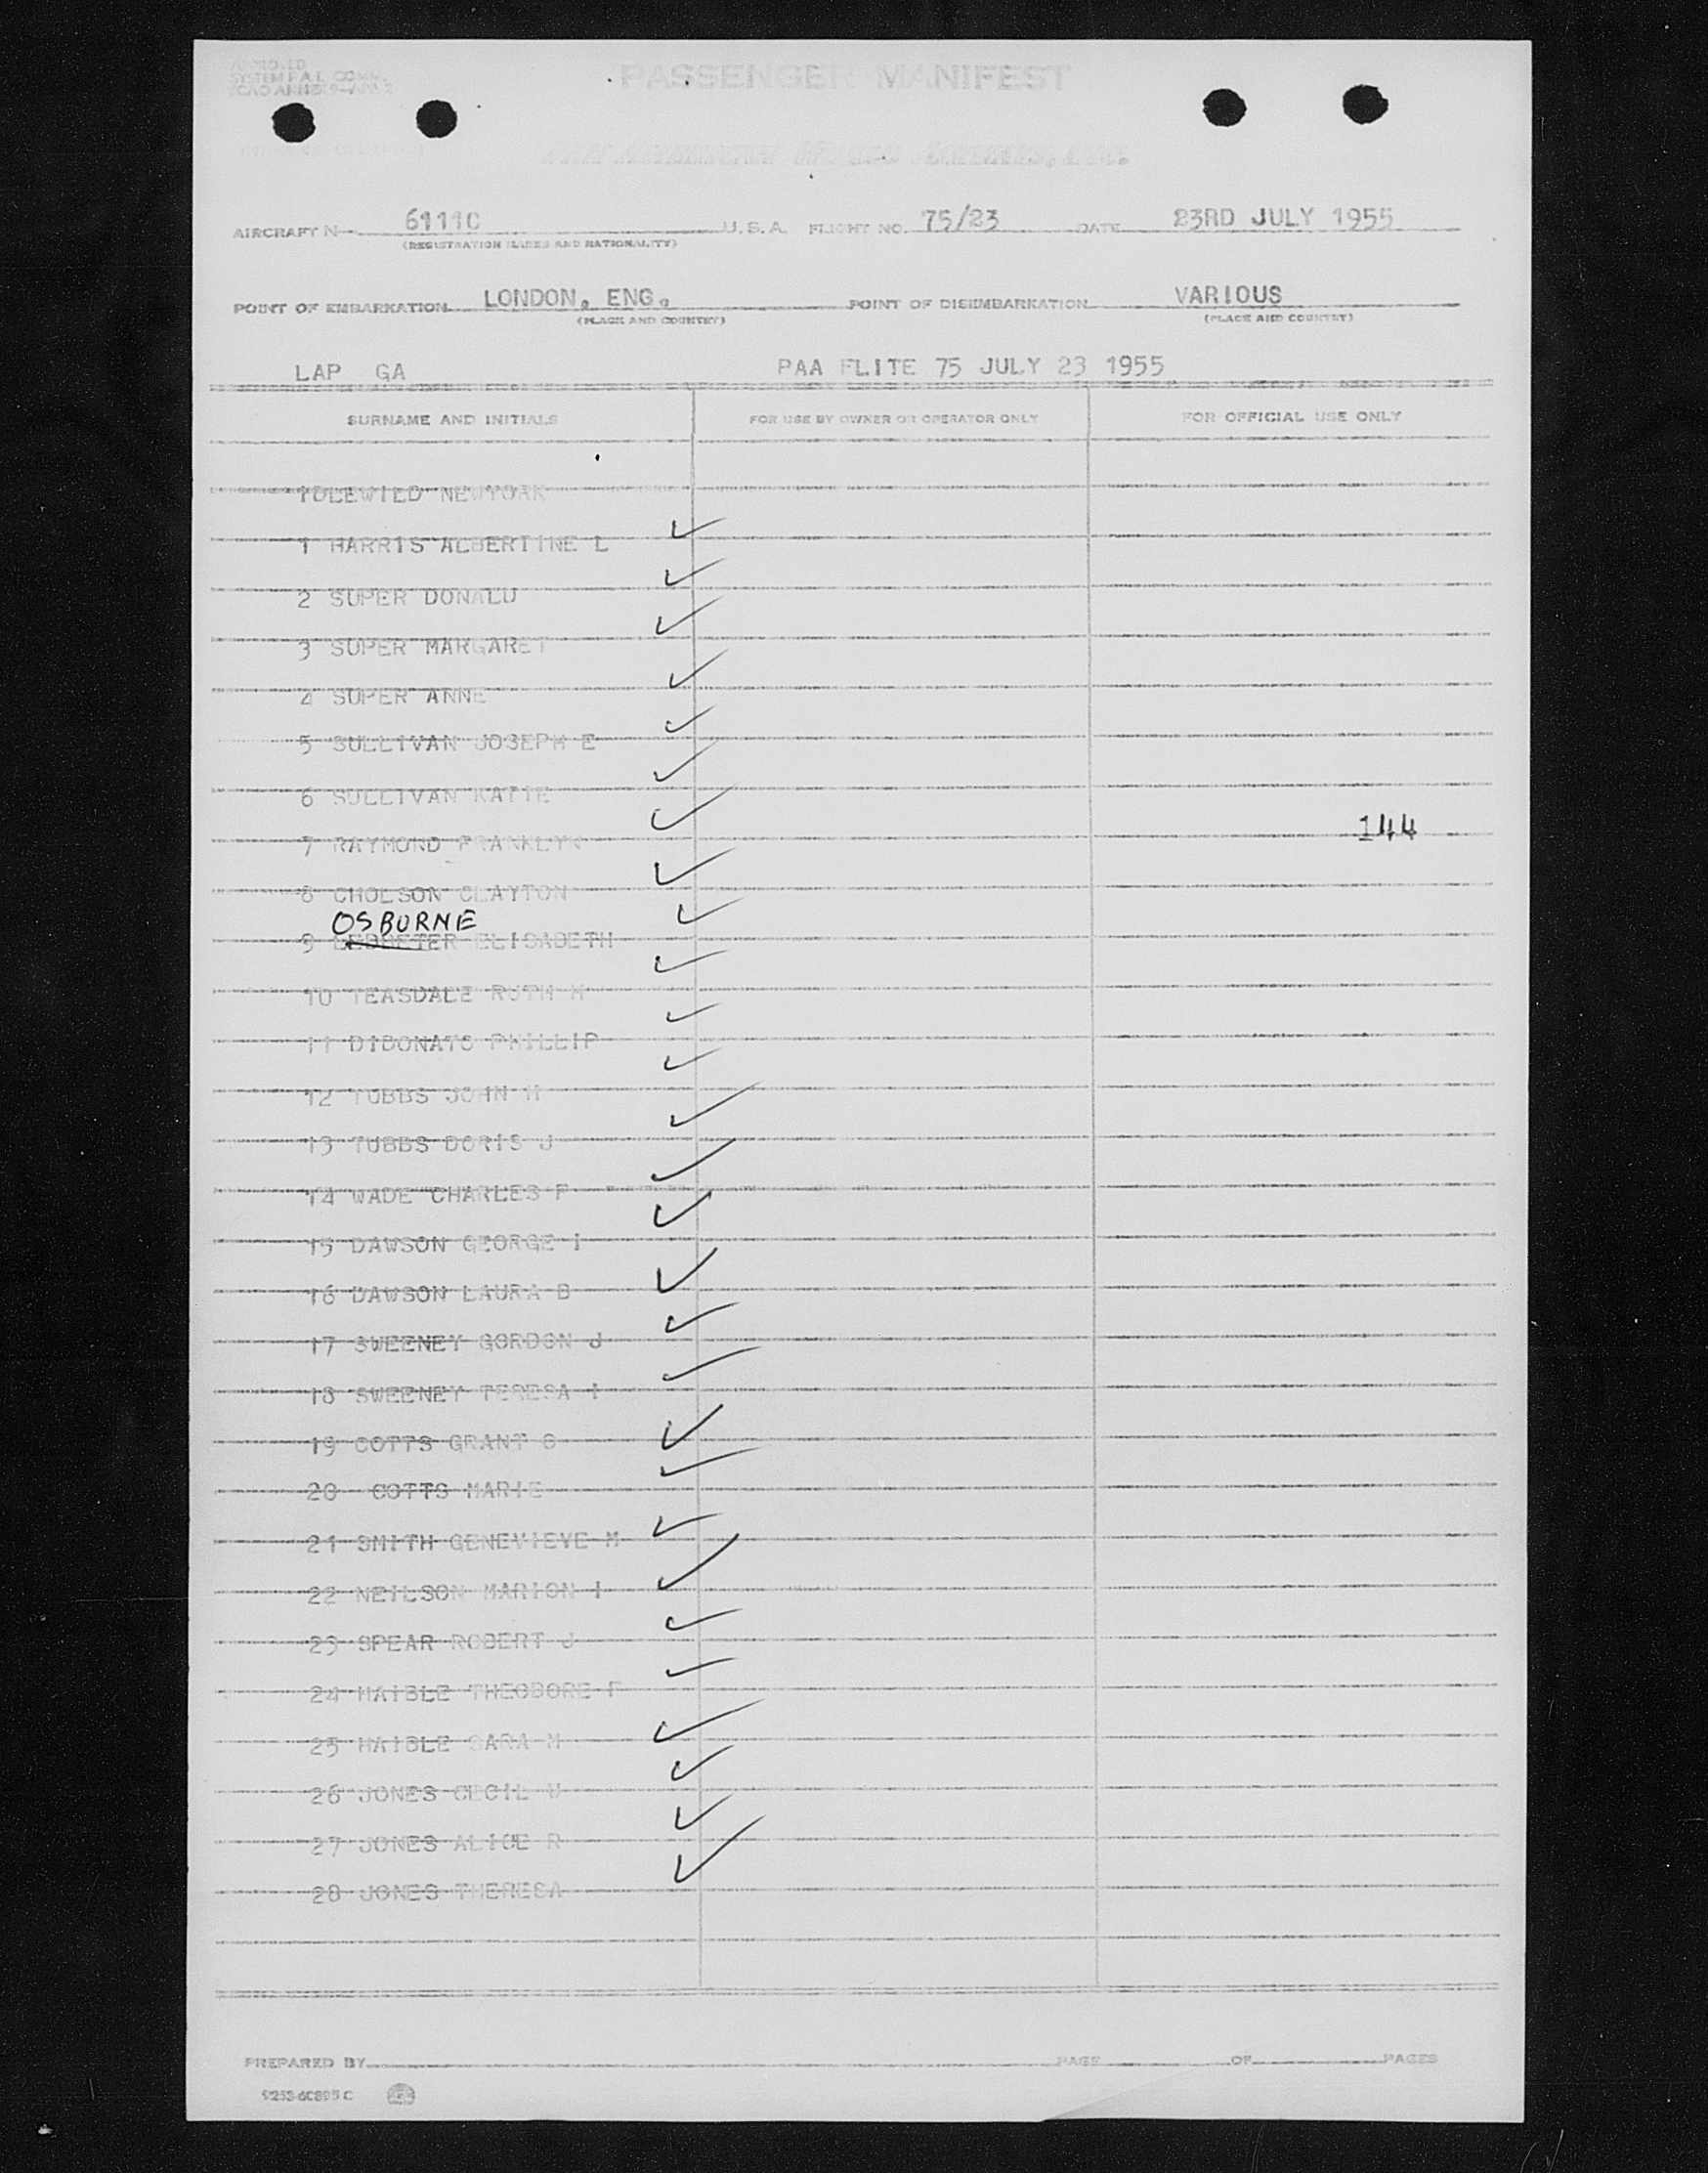 PASSENGER MANIFEST
AIRCRAFT N 6111C U.S.A. FLIGHT NO. 75/23 DATE 23RD JULY 1955
(REGISTRATION MARKS AND NATIONALITY)
POINT OF EMBARKATION LONDON, ENG. POINT OF DISEMBARKATION VARIOUS
(PLACE AND COUNTRY) (PLACE AND COUNTRY)
LAP GA PAA FLITE 75 JULY 23 1955
SURNAME AND INITIALS FOR USE BY OWNER OR OPERATOR ONLY FOR OFFICIAL USE ONLY
IDLEWILD NEWYORK
1 HARRIS ALBERTINE L
2 SUPER DONALD
3 SUPER MARGARET
4 SUPER ANNE
5 SULLIVAN JOSEPH E
6 SULLIVAN KATIE
144
7 RAYMOND FRANKLYN
8 CHOLSON CLAYTON
OSBURNE
9 ELISABETH
10 TEASDALE RUTH M
11 DIDONATO PHILLIP
12 TUBBS JOHN H
13 TUBBS DORIS J
14 WADE CHARLES F
15 DAWSON GEORGE I
16 DAWSON LAURA B
17 SWEENEY GORDON J
18 SWEENEY TERESA I
19 COTTS GRANT
20 COTTS MARIE
21 SMITH GENEVIEVE M
22 NEILSON MARION I
23 SPEAR ROBERT J
24 HAIBLE THEODORE F
25 HAIBLE SARA M
26 JONES CECIL
27 JONES ALICE R
28 JONES THERESA
PREPARED BY PAGE OF PAGES